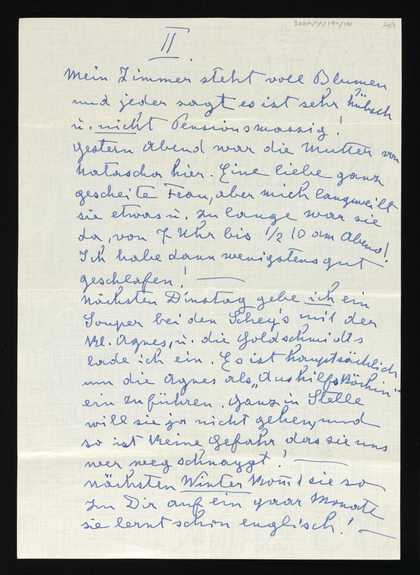 II.
Mein Zimmer steht voll Blumen
und jeder sagt es ist sehr hübsch
u. nicht Pensionsmassig!
Gestern Abend war die Mutter von
Natascha hier. Eine liebe ganz
gescheite Frau, aber mich langweilt
sie etwas u. zu lange war sie
da, von 7 Uhr bis 1/2 10 am Abend!
Ich habe dann wenigstens gut
geschlafen! —
Nächsten Dinstag gebe ich ein
Souper bei den Schey's mit der
Kl. Agnes, u. die Goldschmidts
lade ich ein. Es ist hauptsächlich
um die Agnes als „Aushilfsköchin"
ein zu führen. Ganz in Stelle
will sie ja nicht gehen, und
so ist keine Gefahr das sie uns
wer weg schnappt! —
nächsten Winter kommt sie so
zu Dir auf ein paar Monate
sie lernt schon englisch! —